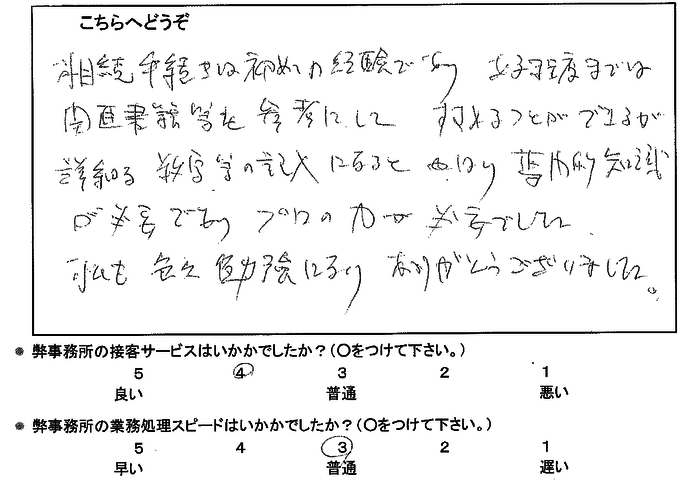 こちらへどうぞ
相続手続きは初めての経験であり ある程度までは
関連書籍等を参考にして 対処することができるが
詳細な数字等の記入になると やはり専門的知識
が必要であり プロの力が必要でした。
私も色々勉強になり ありがとうございました。
● 弊事務所の接客サービスはいかかでしたか？(〇をつけて下さい。)
5 4 3 2 1
良い 普通 悪い
● 弊事務所の業務処理スピードはいかかでしたか？(〇をつけて下さい。)
5 4 3 2 1
早い 普通 遅い